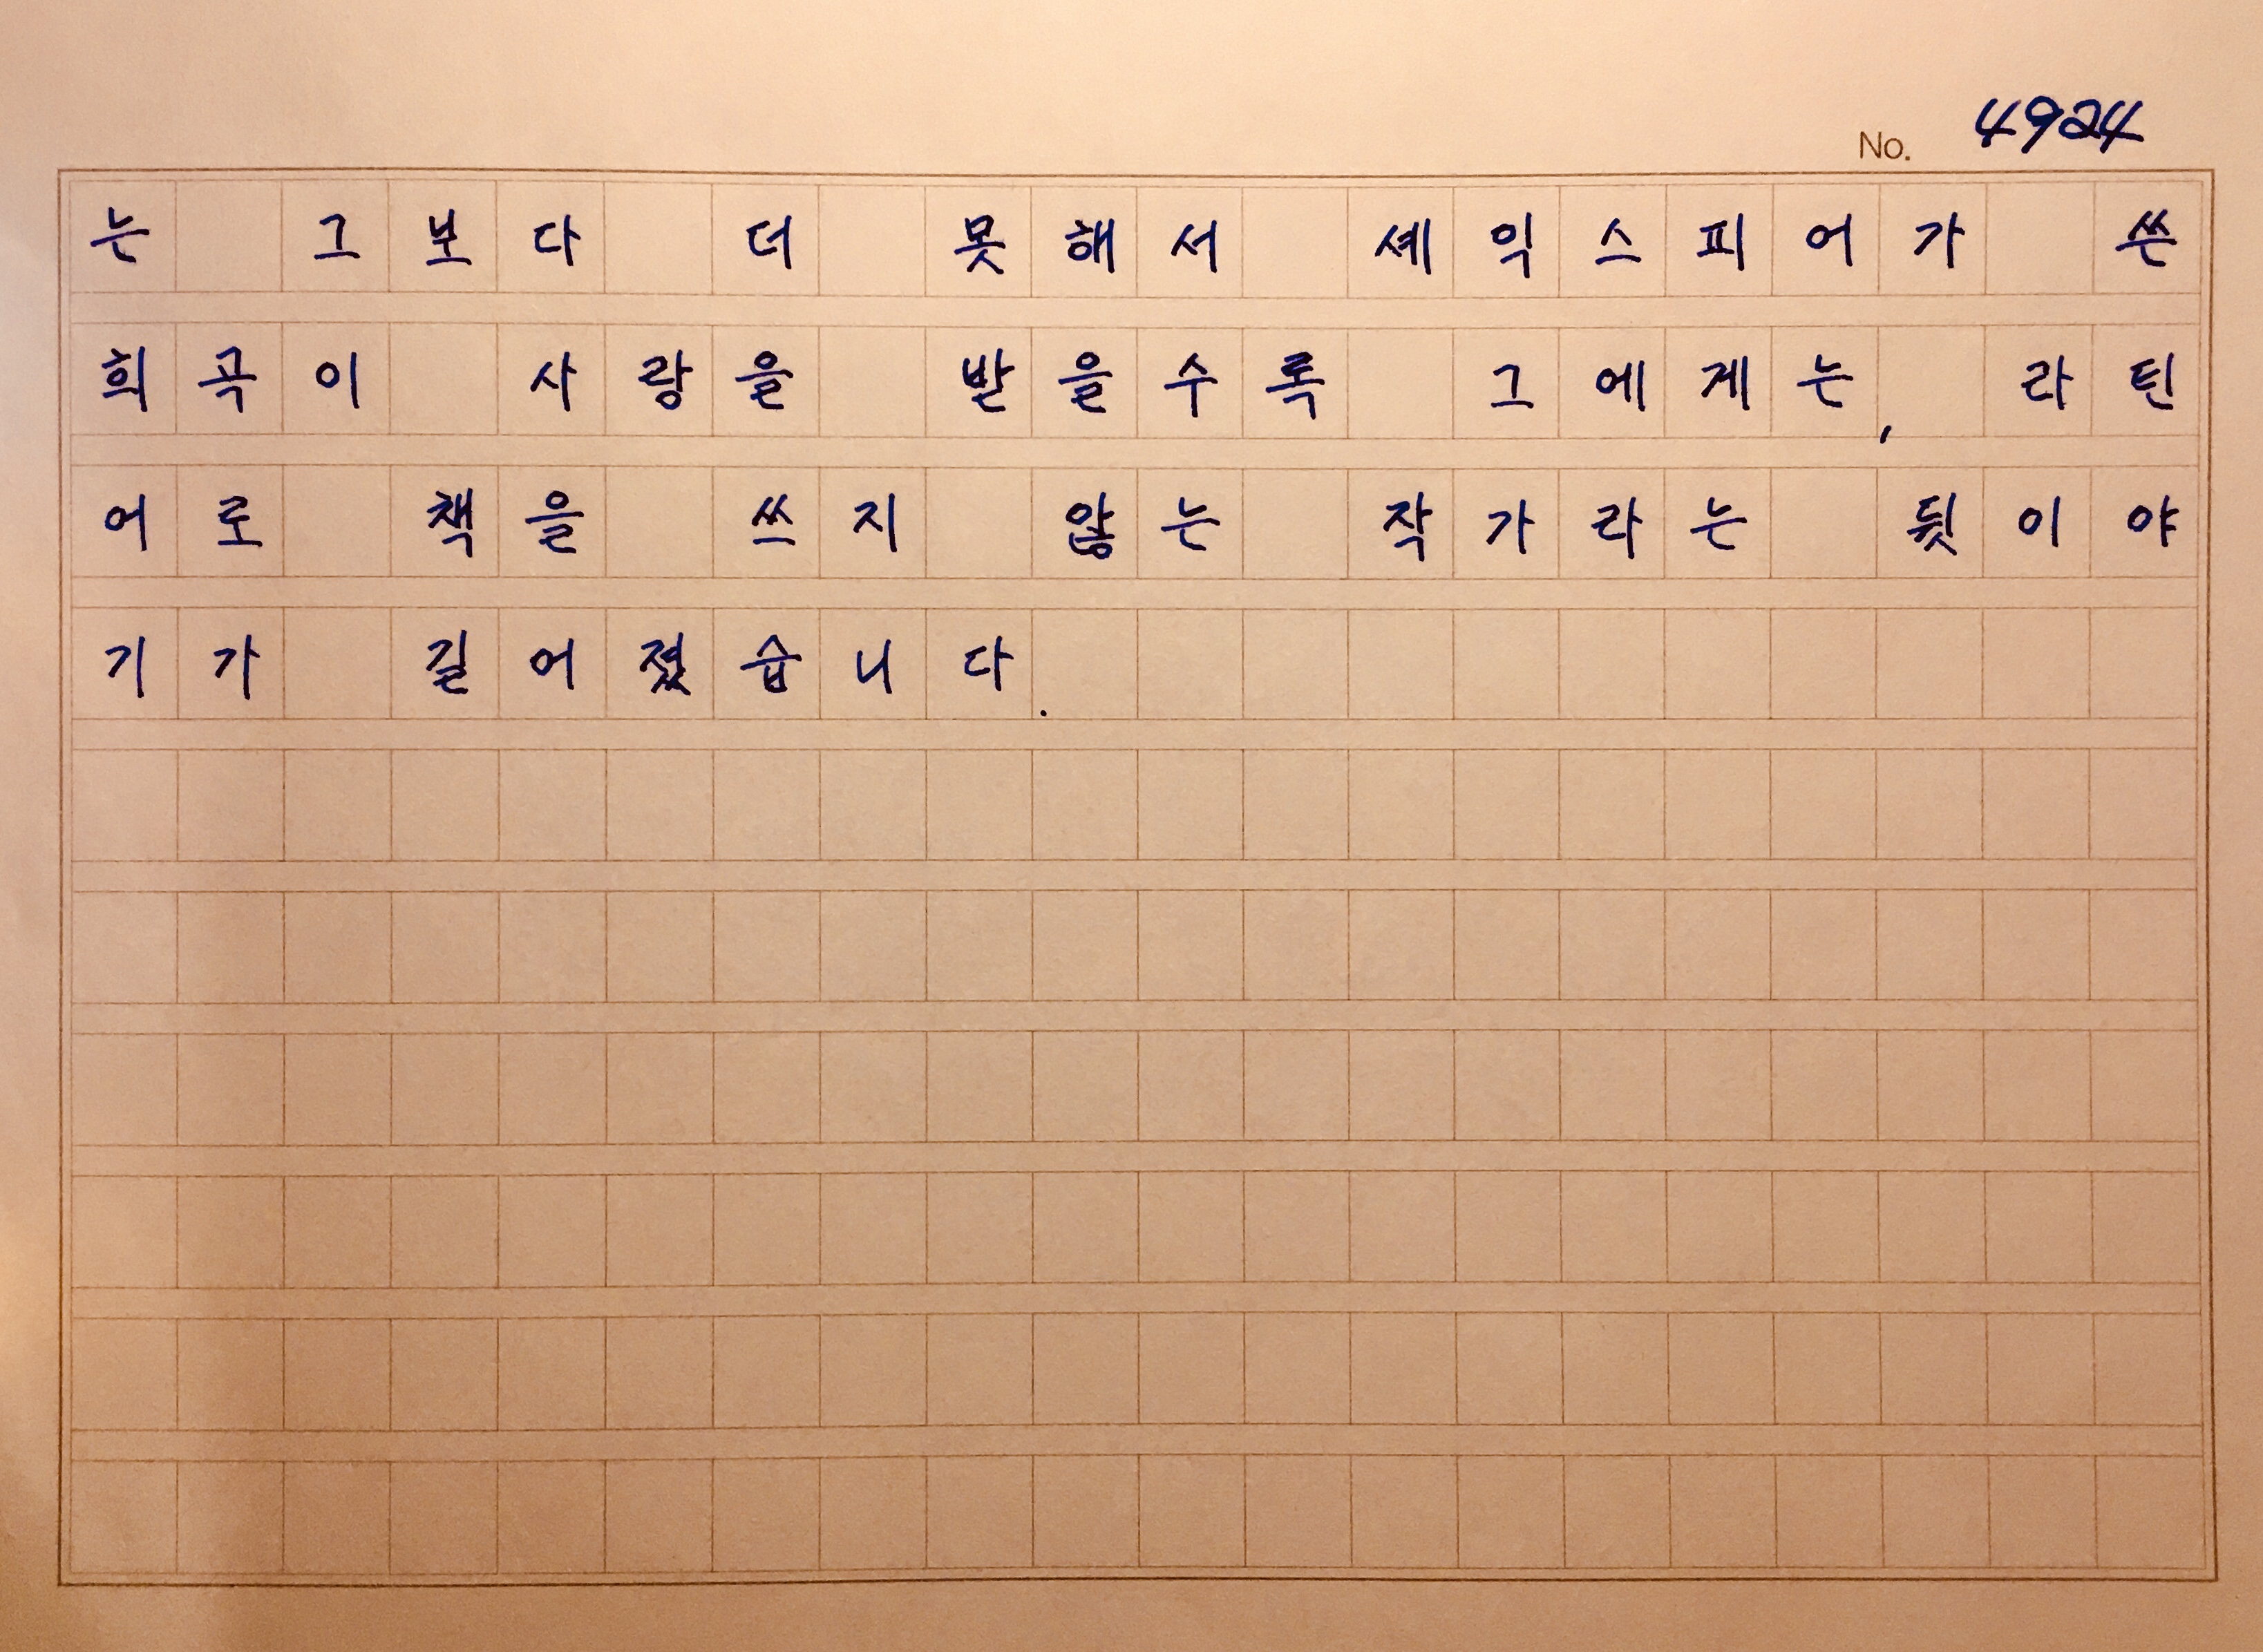 No. 4924
는 그보다 더 못해서 셰익스피어가 쓴
희곡이 사랑을 받을수록 그에게는, 라틴
어로 책을 쓰지 않는 작가라는 뒷이야
기가 길어졌습니다.